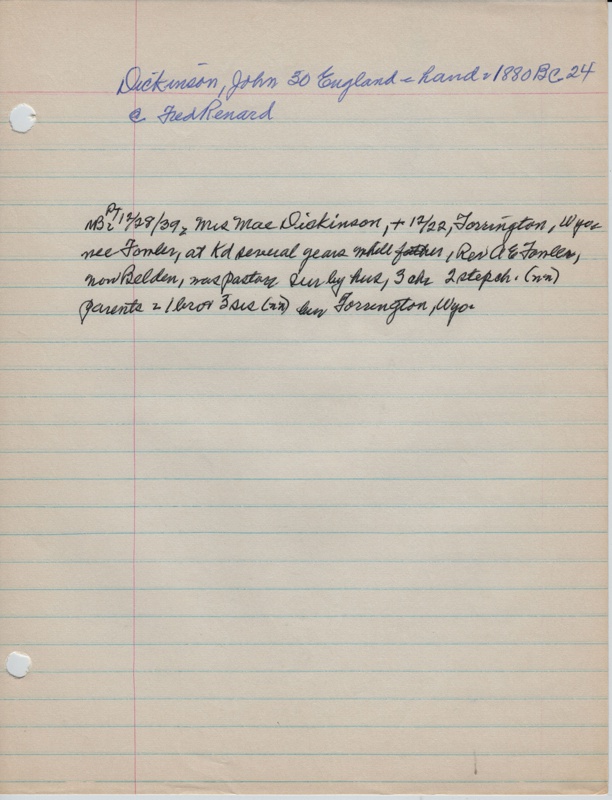 Dickinson, John 30 England = hand = 1880 BC 24
c Fred Renard
NBr Pt 12/28/39 = Mrs Mae Dickinson, + 12/22, Torrington, Wyo =
nee Fowler, at Kd several years while father, Rev A E Fowler,
now Belden, was pastor = sur by hus, 3 chr 2 stepch. (nn)
parents = 1 bro + 3 sis (nn) bur Torrington, Wyo =